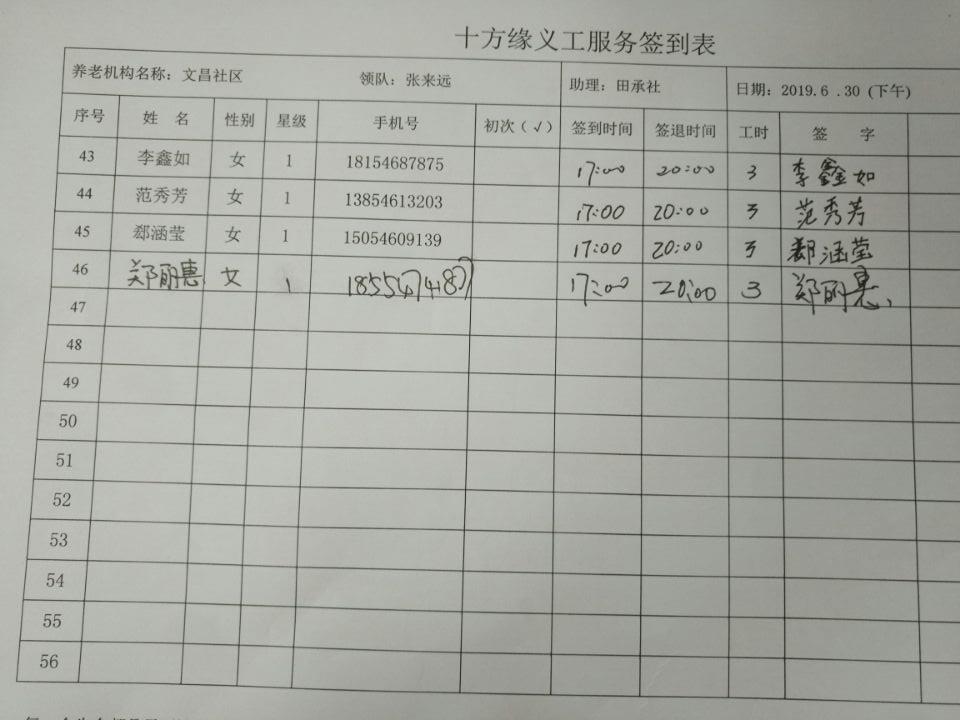 十方缘义工服务签到表
养老机构名称：文昌社区 领队：张来远 助理：田承社 日期：2019.6 .30 (下午)
序号 姓 名 性别 星级 手机号 初次（√） 签到时间 签退时间 工时 签 字
43 李鑫如 女 1 18154687875 17:00 20:00 3 李鑫如
44 范秀芳 女 1 13854613203 17:00 20:00 3 范秀芳
45 郄涵莹 女 1 15054609139 17:00 20:00 3 郄涵莹
46 郑丽惠 女 1 17:00 20:00 3 郑丽惠
47
48
49
50
51
52
53
54
55
56